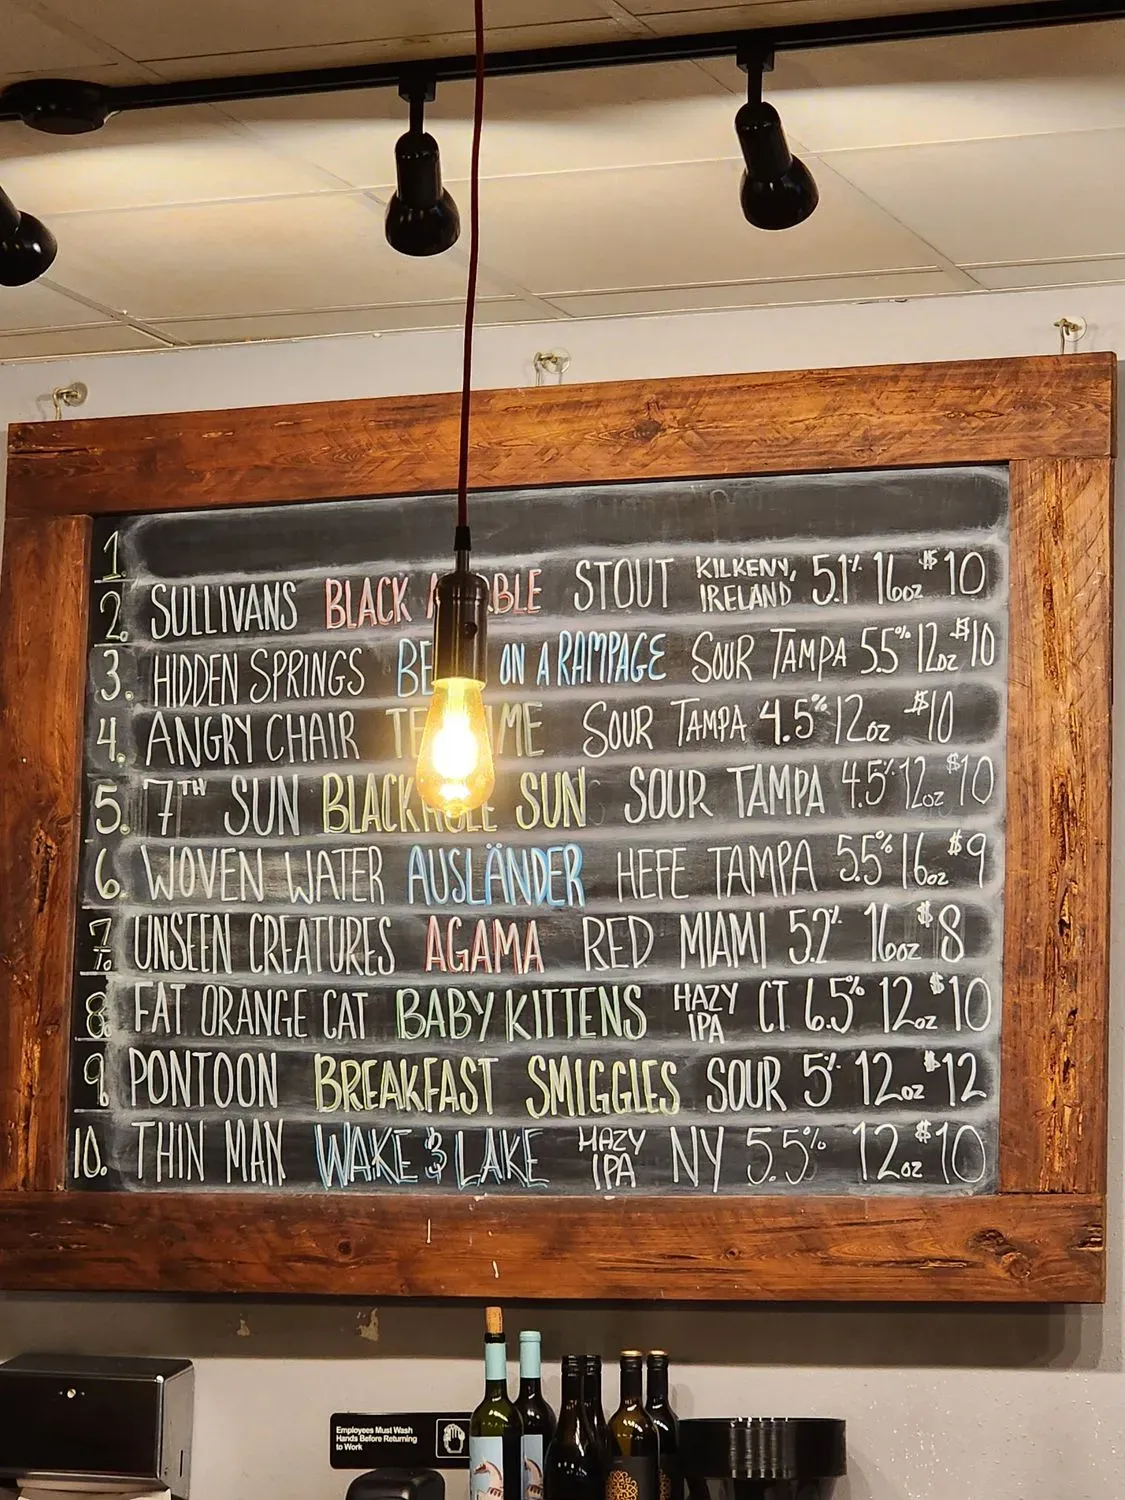 1
2. SULLIVANS BLACK STOUT KILKENY, IRELAND 5.1% 16oz $10
3. HIDDEN SPRINGS ON A RAMPAGE SOUR TAMPA 5.5% 12oz $10
4. ANGRY CHAIR SOUR TAMPA 4.5% 12oz $10
5. 7TH SUN BLACKHOLE SUN SOUR TAMPA 4.5% 12oz $10
6. WOVEN WATER AUSLÄNDER HEFE TAMPA 5.5% 16oz $9
7 UNSEEN CREATURES AGAMA RED MIAMI 5.2% 16oz $8
8. FAT ORANGE CAT BABY KITTENS HAZY IPA CT 6.5% 12oz $10
9. PONTOON BREAKFAST SMIGGLES SOUR 5% 12oz $12
10. THIN MAN WAKE & LAKE HAZY IPA NY 5.5% 12oz $10
Employees Must Wash
Hands Before Returning
to Work